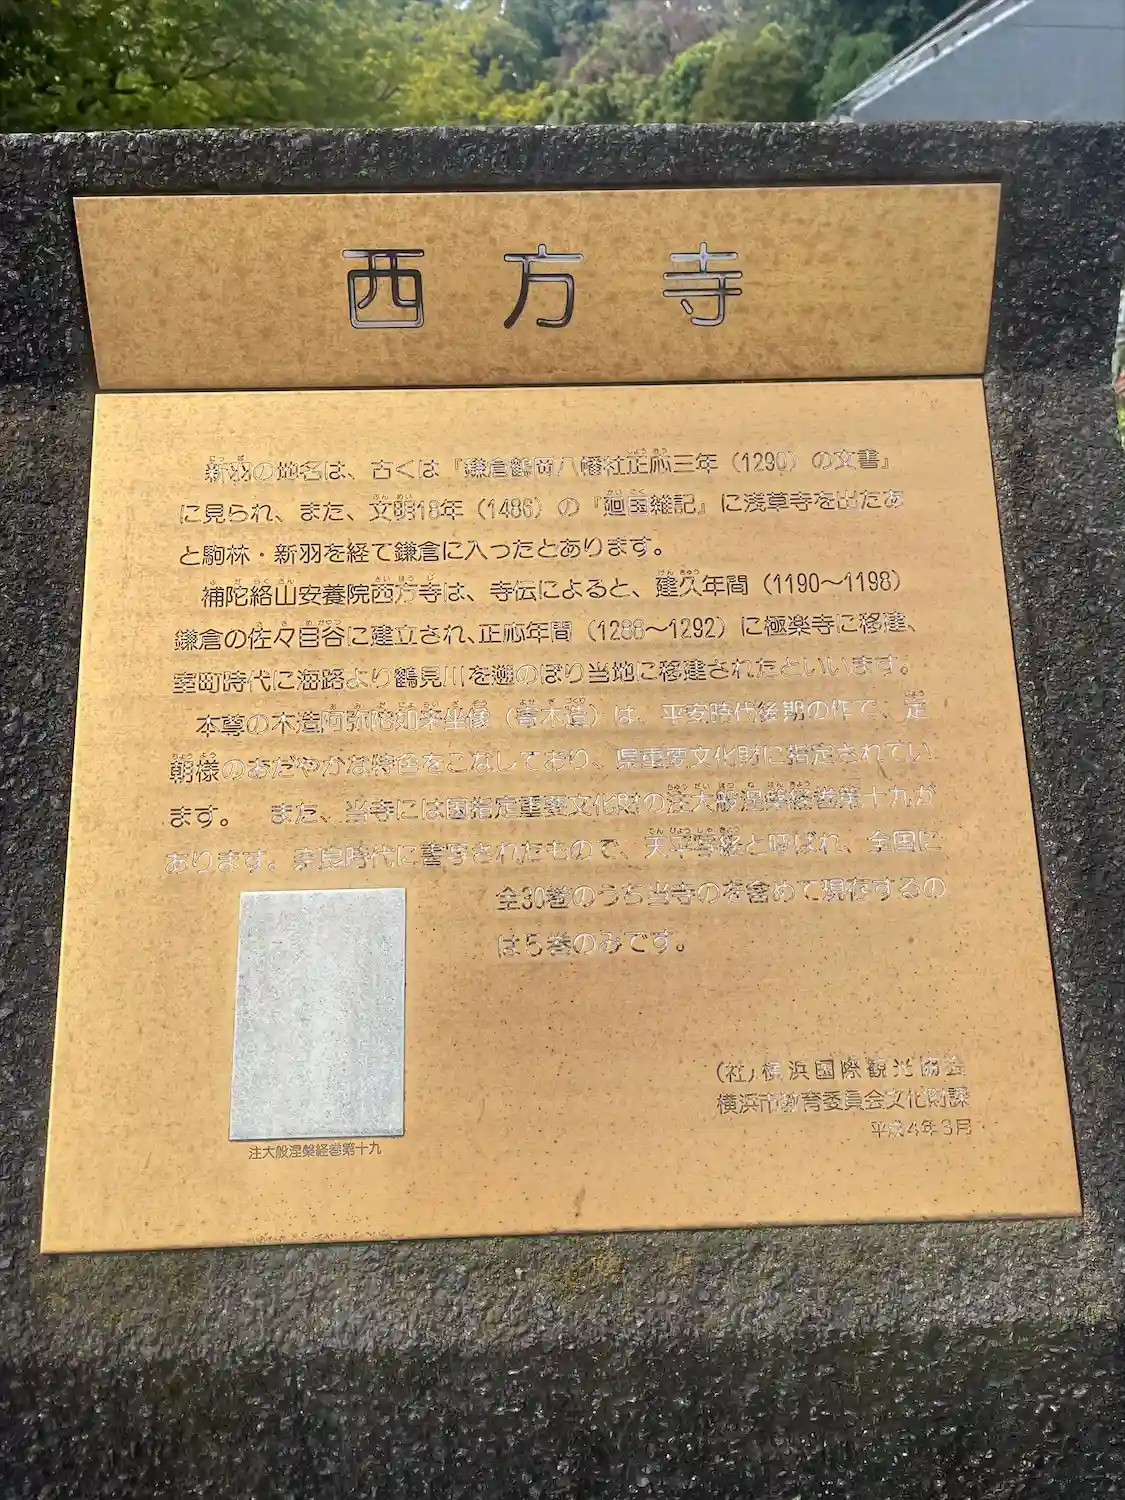 西方寺
新羽の地名は、古くは『鎌倉鶴岡八幡社正応三年（1290）の文書』
に見られ、また、文明18年（1486）の『廻国雑記』に浅草寺を出たあ
と駒林・新羽を経て鎌倉に入ったとあります。
補陀絡山安養院西方寺は、寺伝によると、建久年間（1190〜1198）
鎌倉の佐々目谷に建立され、正応年間（1288〜1292）に極楽寺に移建、
室町時代に海路より鶴見川を遡のぼり当地に移建されたといいます。
本尊の木造阿弥陀如来坐像（寄木造）は、平安時代後期の作で、定
朝様のおだやかな特色をこなしており、県重要文化財に指定されてい
ます。 また、当寺には国指定重要文化財の注大般涅槃経巻第十九が
あります。奈良時代に書写されたもので、天平写経と呼ばれ、全国に
全30巻のうち当寺のを含めて現存するの
は5巻のみです。
注大般涅槃経巻第十九
（社）横浜国際観光協会
横浜市教育委員会文化財課
平成4年3月